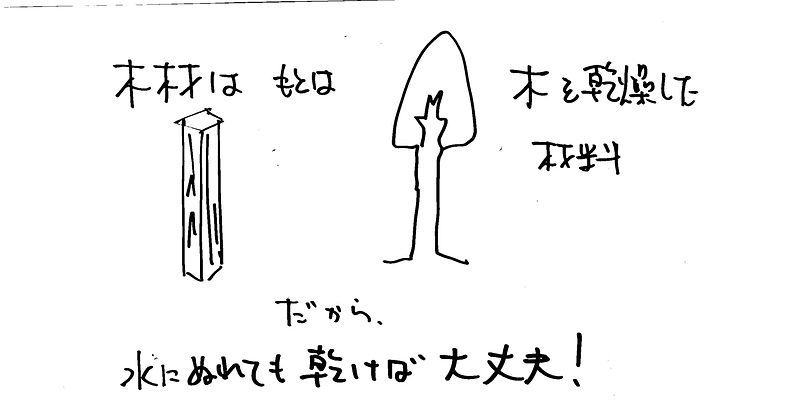 木材は もとは 木を乾燥した
材料
だから、
水にぬれても乾けば大丈夫!